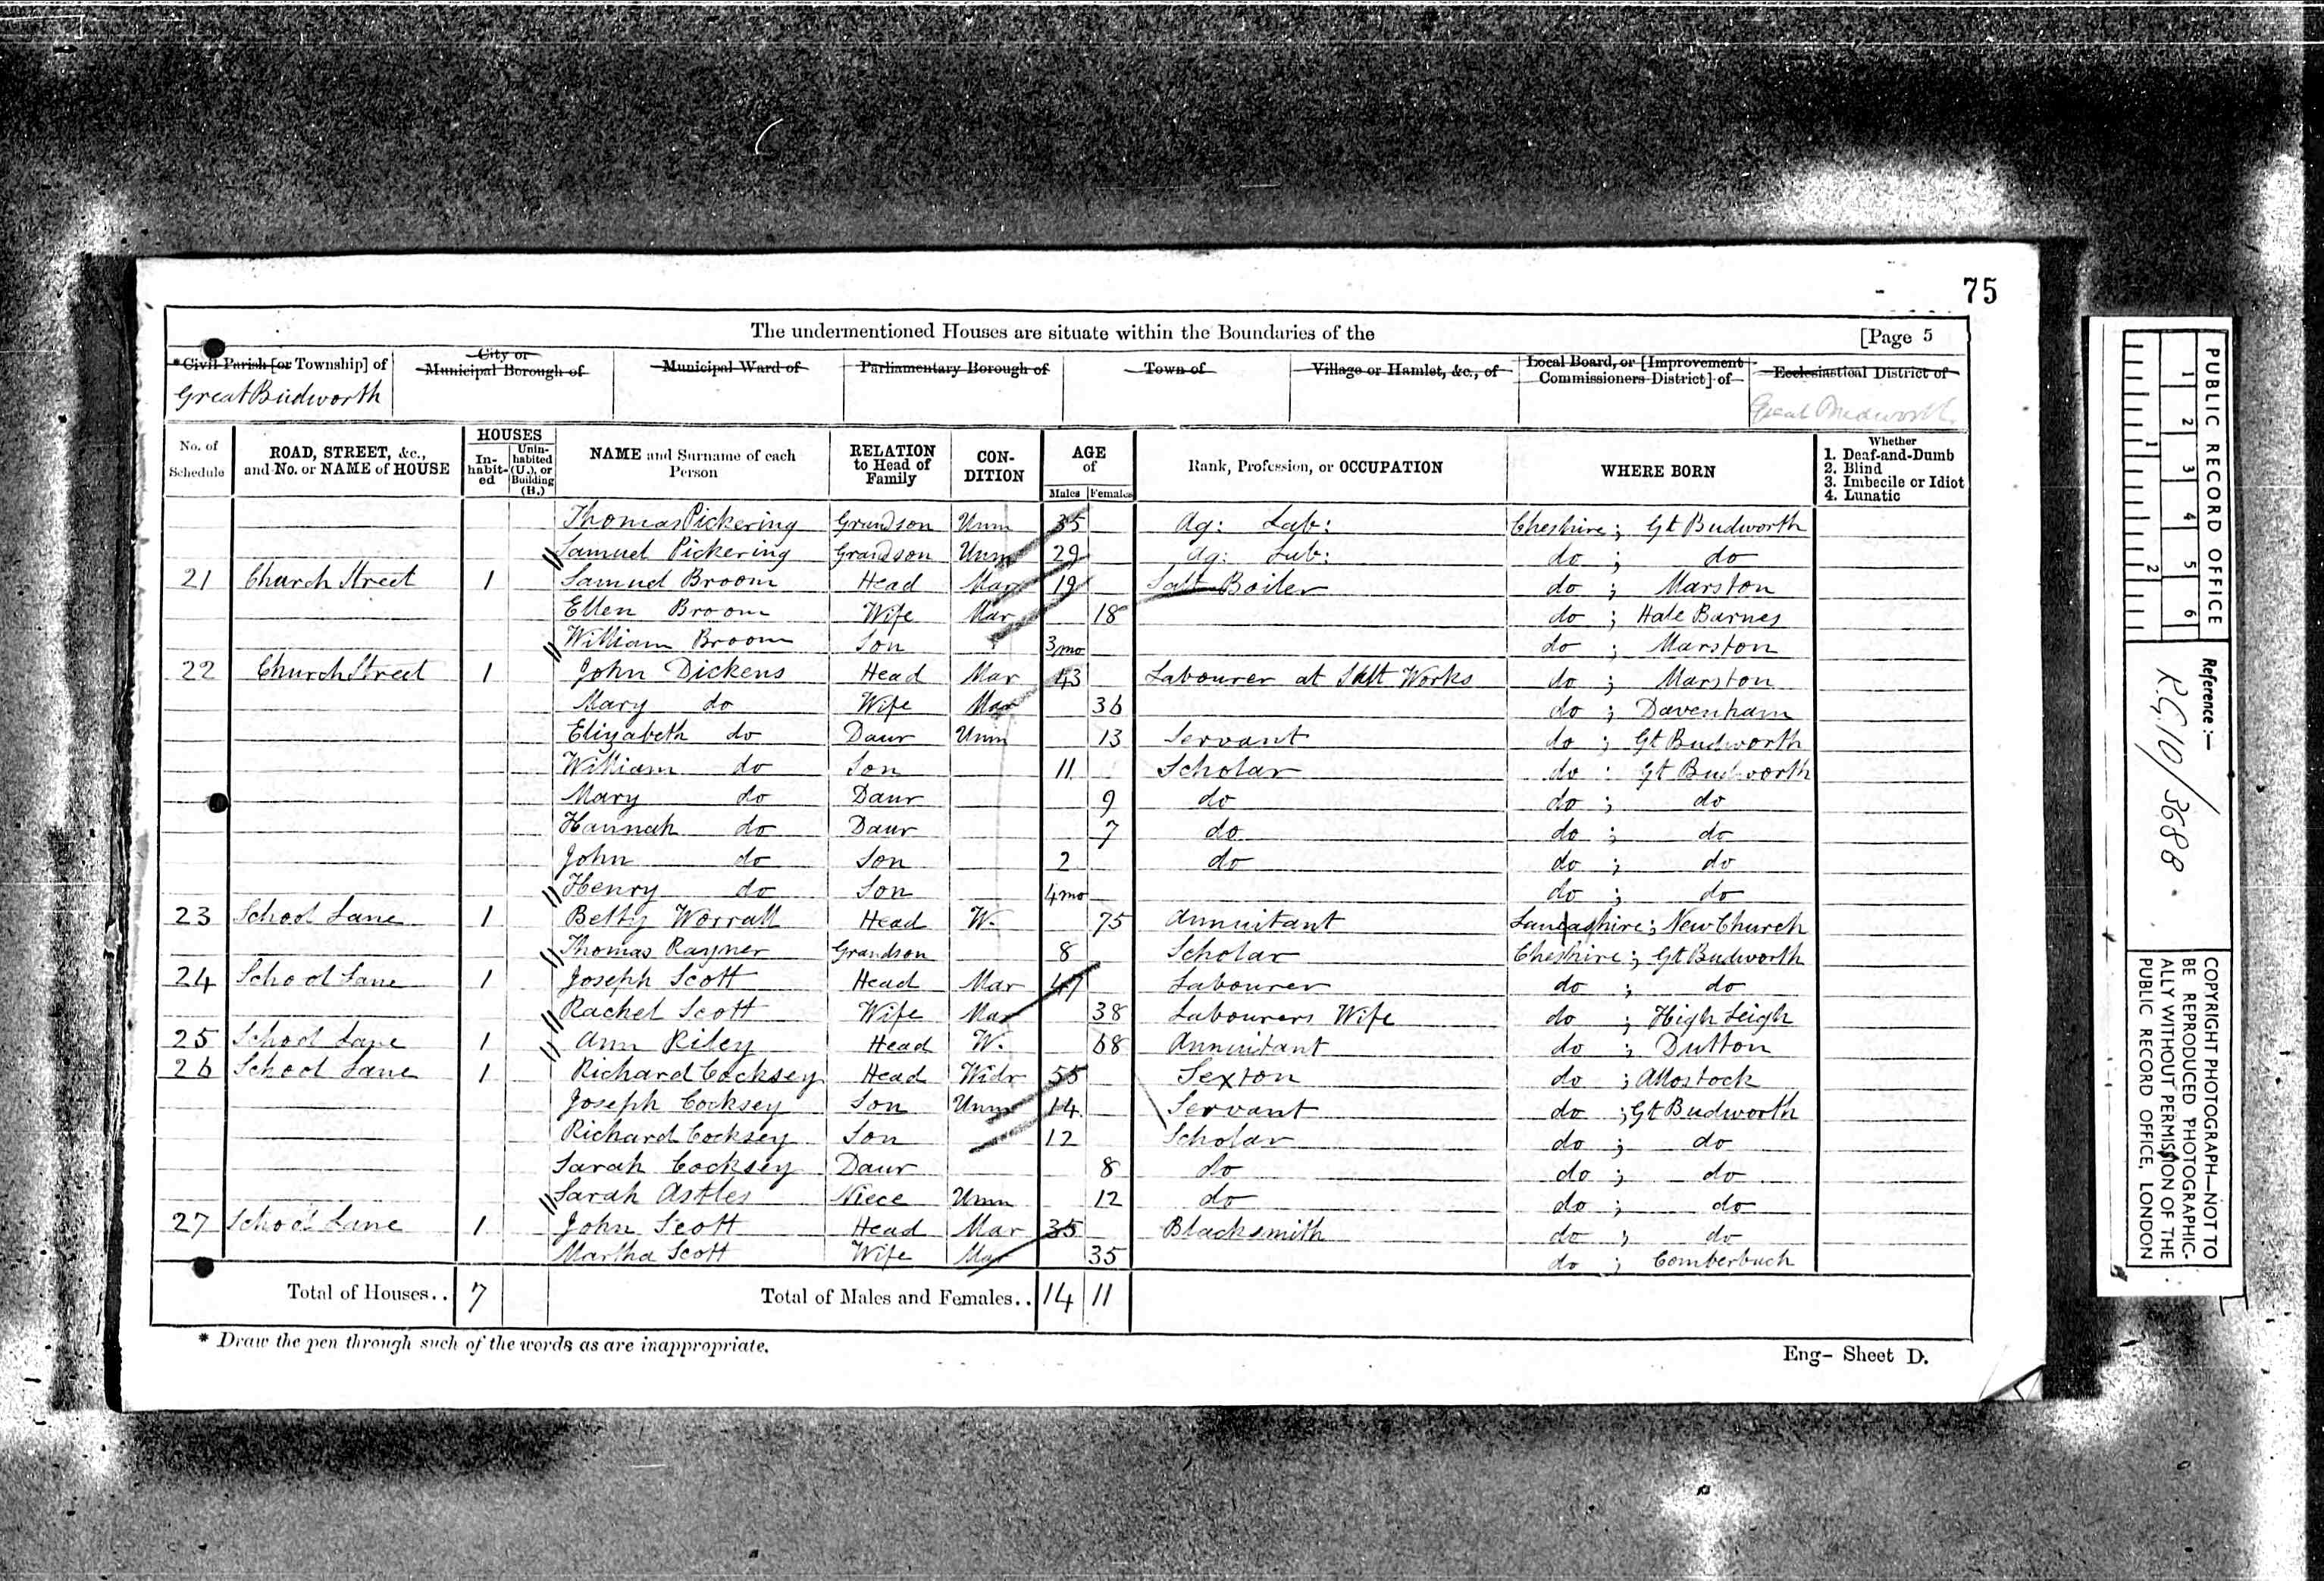 75
The undermentioned Houses are situate within the Boundaries of the [Page 5
*Civil Parish [or Township] of City or Municipal Borough of Municipal Ward of Parliamentary Borough of Town of Village or Hamlet, &c., of Local Board, or [Improvement Commissioners District] of Ecclesiastical District of
Great Budworth Great Budworth
No. of Schedule ROAD, STREET, &c., and No. or NAME of HOUSE HOUSES In-habit-ed Unin-habited (U.), or Building (B.) NAME and Surname of each Person RELATION to Head of Family CON-DITION AGE of Males Females Rank, Profession, or OCCUPATION WHERE BORN Whether 1. Deaf-and-Dumb 2. Blind 3. Imbecile or Idiot 4. Lunatic
Thomas Pickering Grandson Unm 35 Ag: Lab: Cheshire; Gt Budworth
Samuel Pickering Grandson Unm 29 Ag: Lab: do ; do
21 Church Street 1 Samuel Broom Head Mar 19 Salt Boiler do ; Marston
Ellen Broom Wife Mar 18 do ; Hale Barnes
William Broom Son 3mo do ; Marston
22 Church Street 1 John Dickens Head Mar 43 Labourer at Salt Works do ; Marston
Mary do Wife Mar 36 do ; Davenham
Elizabeth do Daur Unm 13 Servant do ; Gt Budworth
William do Son 11 Scholar do ; Gt Budworth
Mary do Daur 9 do do ; do
Hannah do Daur 7 do do ; do
John do Son 2 do do ; do
Henry do Son 4mo do ; do
23 School Lane 1 Betty Worrall Head W. 75 Annuitant Lancashire; New Church
Thomas Rayner Grandson 8 Scholar Cheshire; Gt Budworth
24 School Lane 1 Joseph Scott Head Mar 47 Labourer do ; do
Rachel Scott Wife Mar 38 Labourers Wife do ; High Leigh
25 School Lane 1 Ann Riley Head W. 68 Annuitant do ; Dutton
26 School Lane 1 Richard Cocksey Head Widr 55 Sexton do ; Allostock
Joseph Cocksey Son Unm 14 Servant do ; Gt Budworth
Richard Cocksey Son 12 Scholar do ; do
Sarah Cocksey Daur 8 do do ; do
Sarah Astles Niece Unm 12 do do ; do
27 School Lane 1 John Scott Head Mar 35 Blacksmith do ; do
Martha Scott Wife Mar 35 do ; Comberbach
Total of Houses.. 7 Total of Males and Females.. 14 11
* Draw the pen through such of the words as are inappropriate.
Eng- Sheet D.
PUBLIC RECORD OFFICE
1 2 3 4 5 6
1 2
Reference:-
R.G. 10/3688
COPYRIGHT PHOTOGRAPH—NOT TO
BE REPRODUCED PHOTOGRAPHIC-
ALLY WITHOUT PERMISSION OF THE
PUBLIC RECORD OFFICE, LONDON